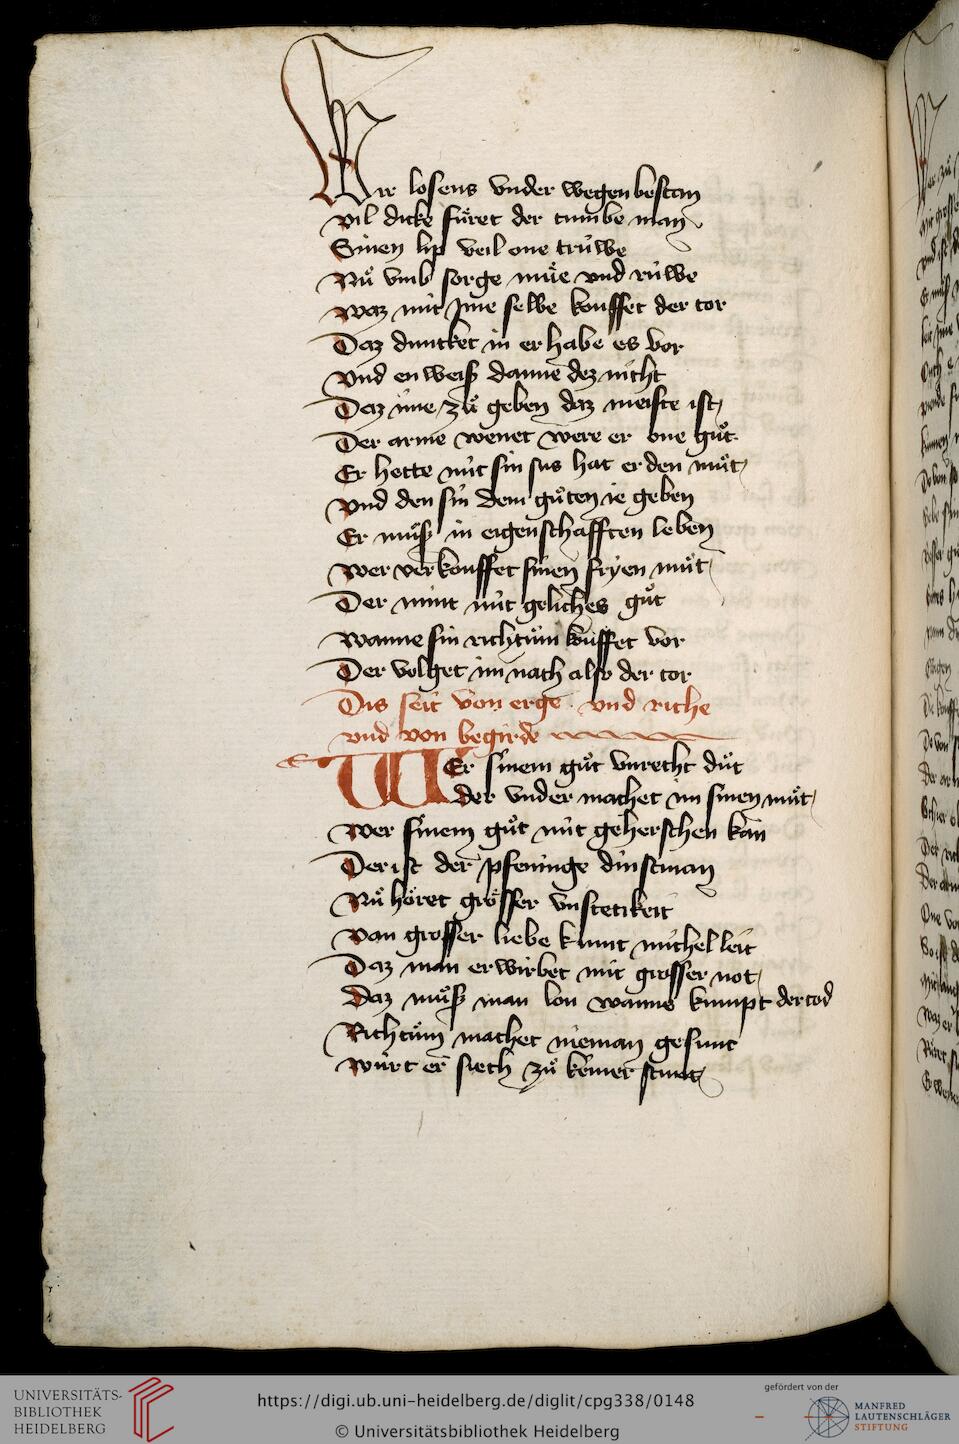 Wir losens vnder wegen bestan
vil dicke fuͤret der tumbe man
Sinen lip veil one truͤwe
Nuͦ vmb sorge muͤe vnd ruͤwe
waz mit Jme selbe kouffet der tor
Daz duncket in er habe es vor
vnd en weiß danne dez nicht
Daz ime zuͦ geben daz meiste ist
Der arme wenet were er one guͦt
Er hette nit sin sus hat er den muͦt
vnd den sin dem guͦten ie geben
Er muͦß in eigenschafften leben
wer verkouffet sinen fryen muͦt
Der nimt nit geliches guͦt
wanne sin richtuͦm louffet vor
Der volget im nach also der tor
Dis seit von erge vnd riche
vnd von begirde
WEr sinem guͦt vnrecht duͦt
der vnder machet im sinen muͦt
wer sinem guͦt nit geherschen kan
Der ist der pfeninge dinstman
Nuͦ hoͤret groͤsser vnstetikeit
van grosser liebe kumt michel leit
Daz man erwirbet mit grosser not
Daz muͦß man lon wanne kumpt der tod
Richtuͦm machet nieman gesunt
wuͤrt er siech zuͦ keiner stunt
UNIVERSITÄTS-
BIBLIOTHEK
HEIDELBERG
https://digi.ub.uni-heidelberg.de/diglit/cpg338/0148
© Universitätsbibliothek Heidelberg
gefördert von der
MANFRED
LAUTENSCHLÄGER
STIFTUNG